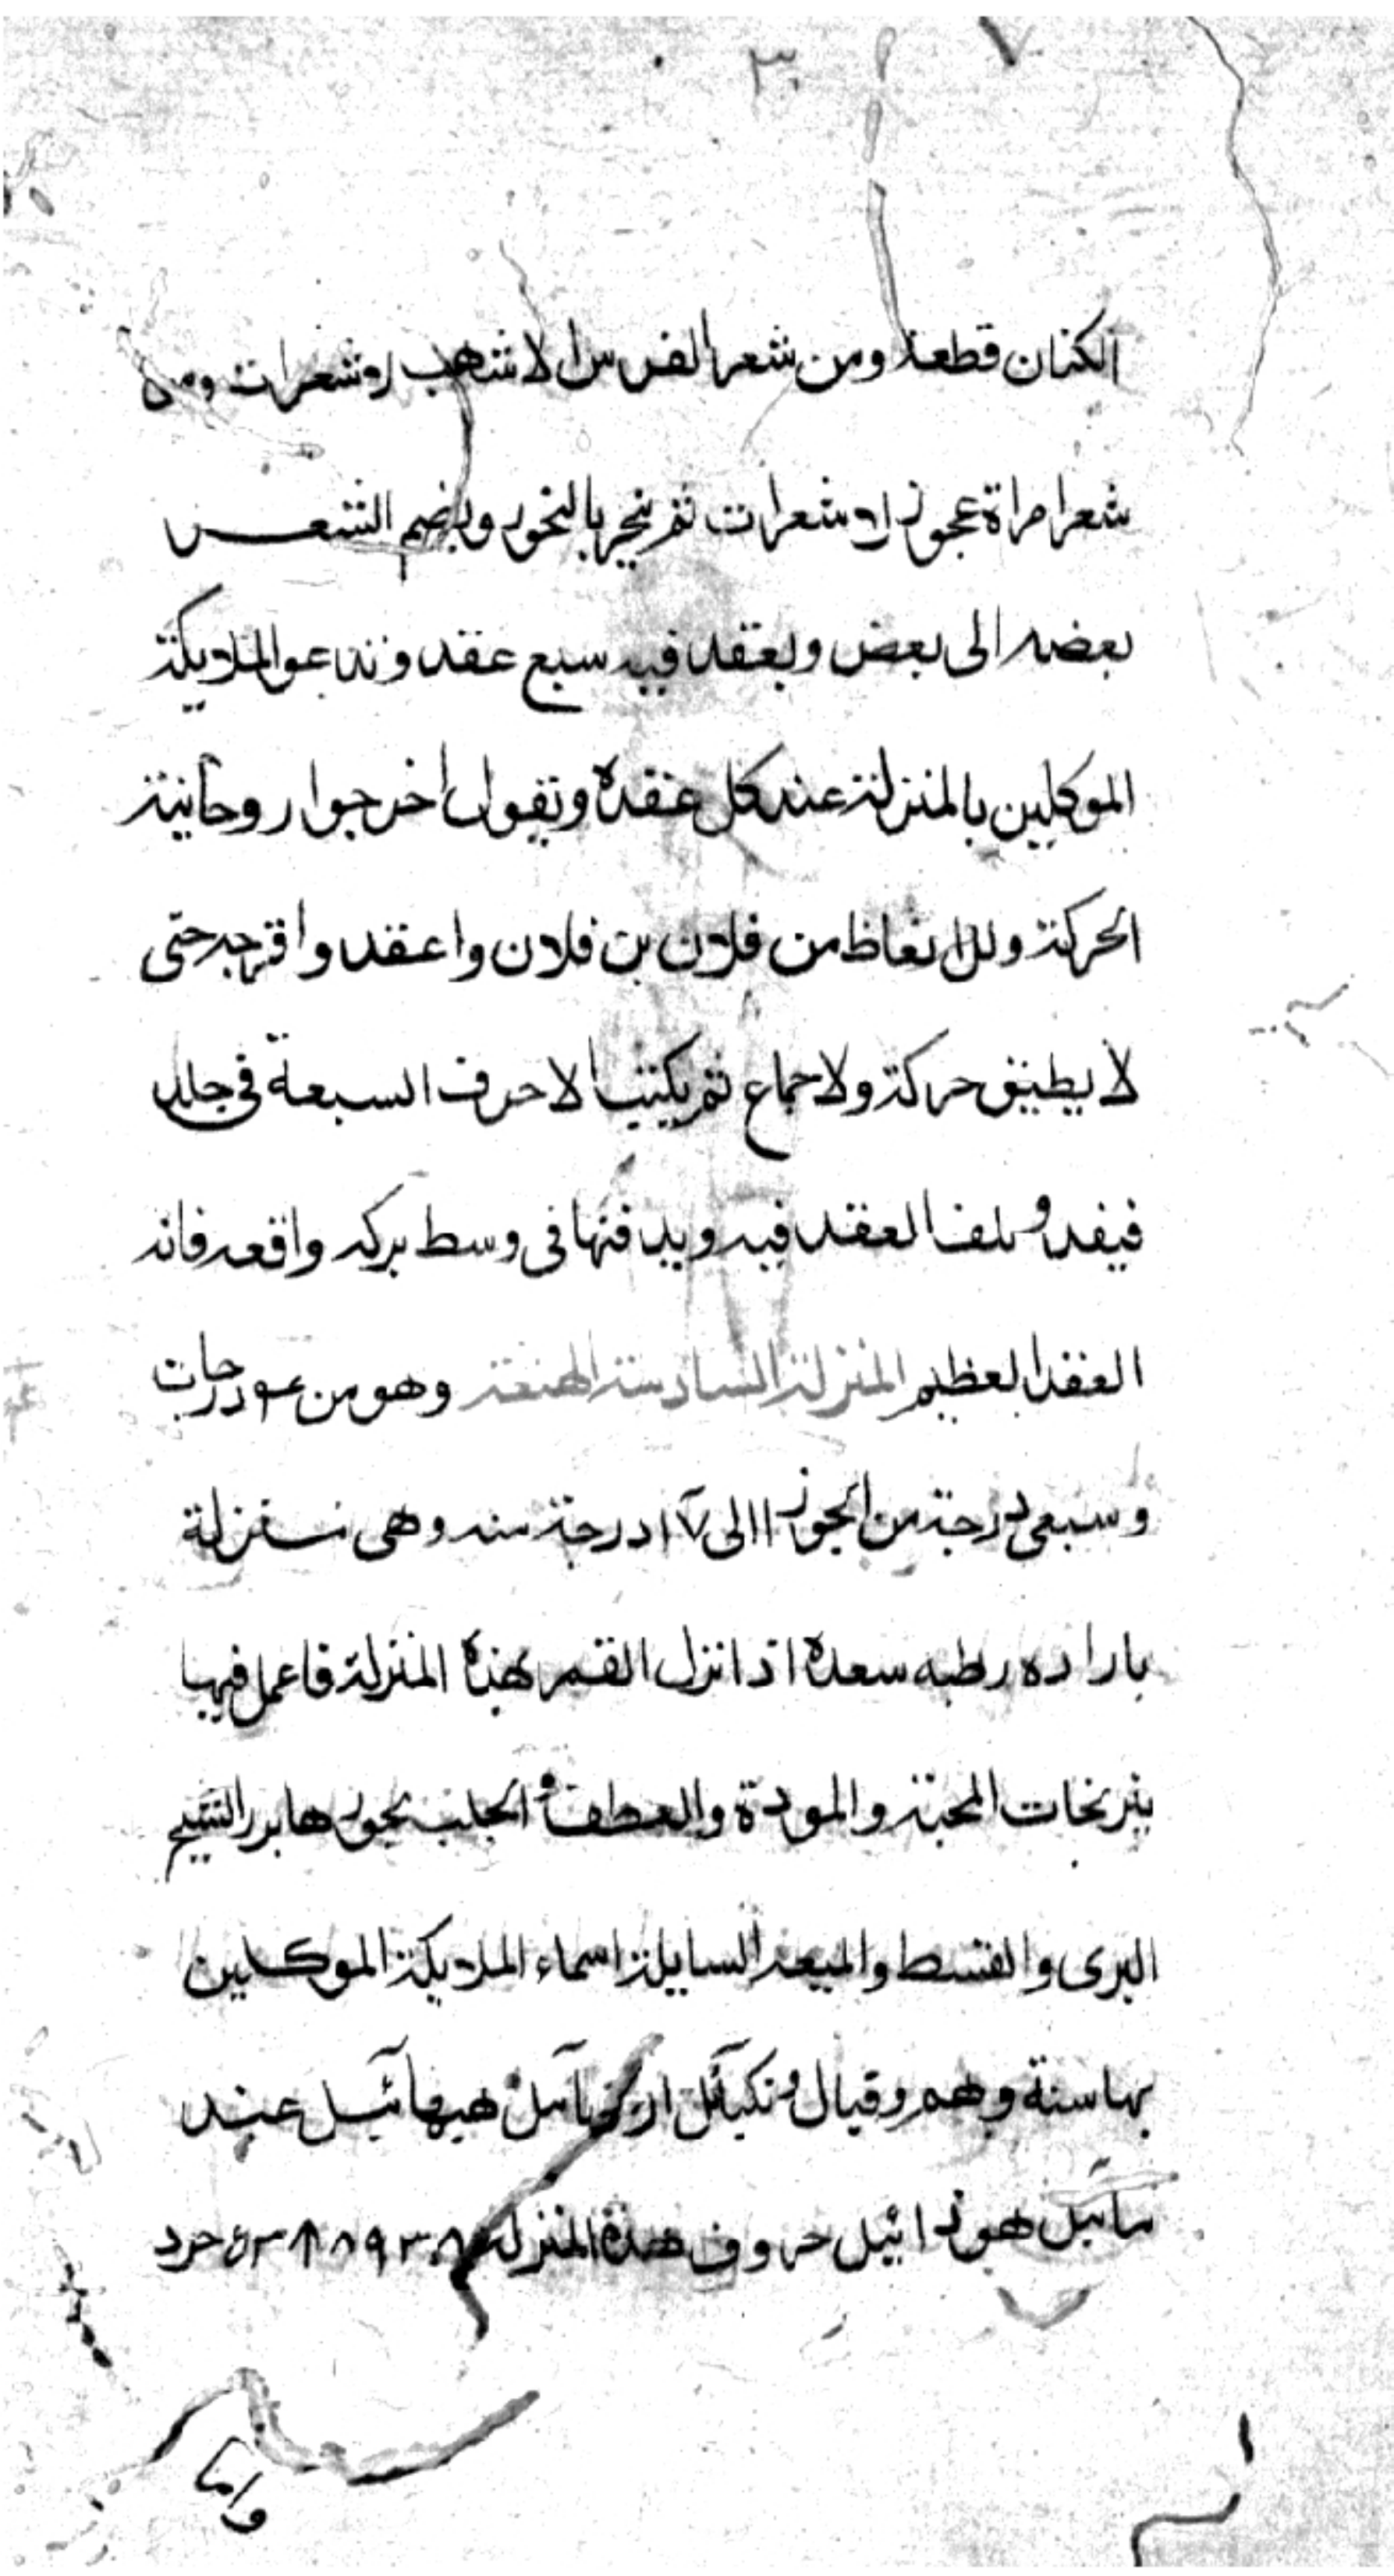 ٣
الكتان قطعة ومن شعر الفرس الاشهب شعرات ومن
شعر امراة عجوز شعرات ثم يبخر بالبخور ويضم الشعر
بعضه الى بعض ويعقد فيه سبع عقد وتدعو الملايكة
الموكلين بالمنزلة عند كل عقدة وتقول اخرجوا روحانية
الحركة من فلان بن فلان واعقدوا حتى
لا يطيق حركة ولا جماع ثم يكتب الاحرف السبعة في جلد
ويلف العقد فيه ويدفنها في وسط بركه واقعه فانه
العقد العظيم المنزلة السادسة الهنعة وهو من درجات
وسبعى درجة من الجوزا الى ١٧ درجة منه وهي منزلة
بارده رطبه سعدة اذا نزل القمر بهذه المنزلة فاعمل فيها
نيرنجات المحبة والمودة والعطف والجلب بخورها بزر الشيح
البرى والقسط والميعه السايلة اسماء الملايكة الموكلين
بها ستة وهم هيهائيل عبد
مائيل هوزائيل حروف هذه المنزلة
واما